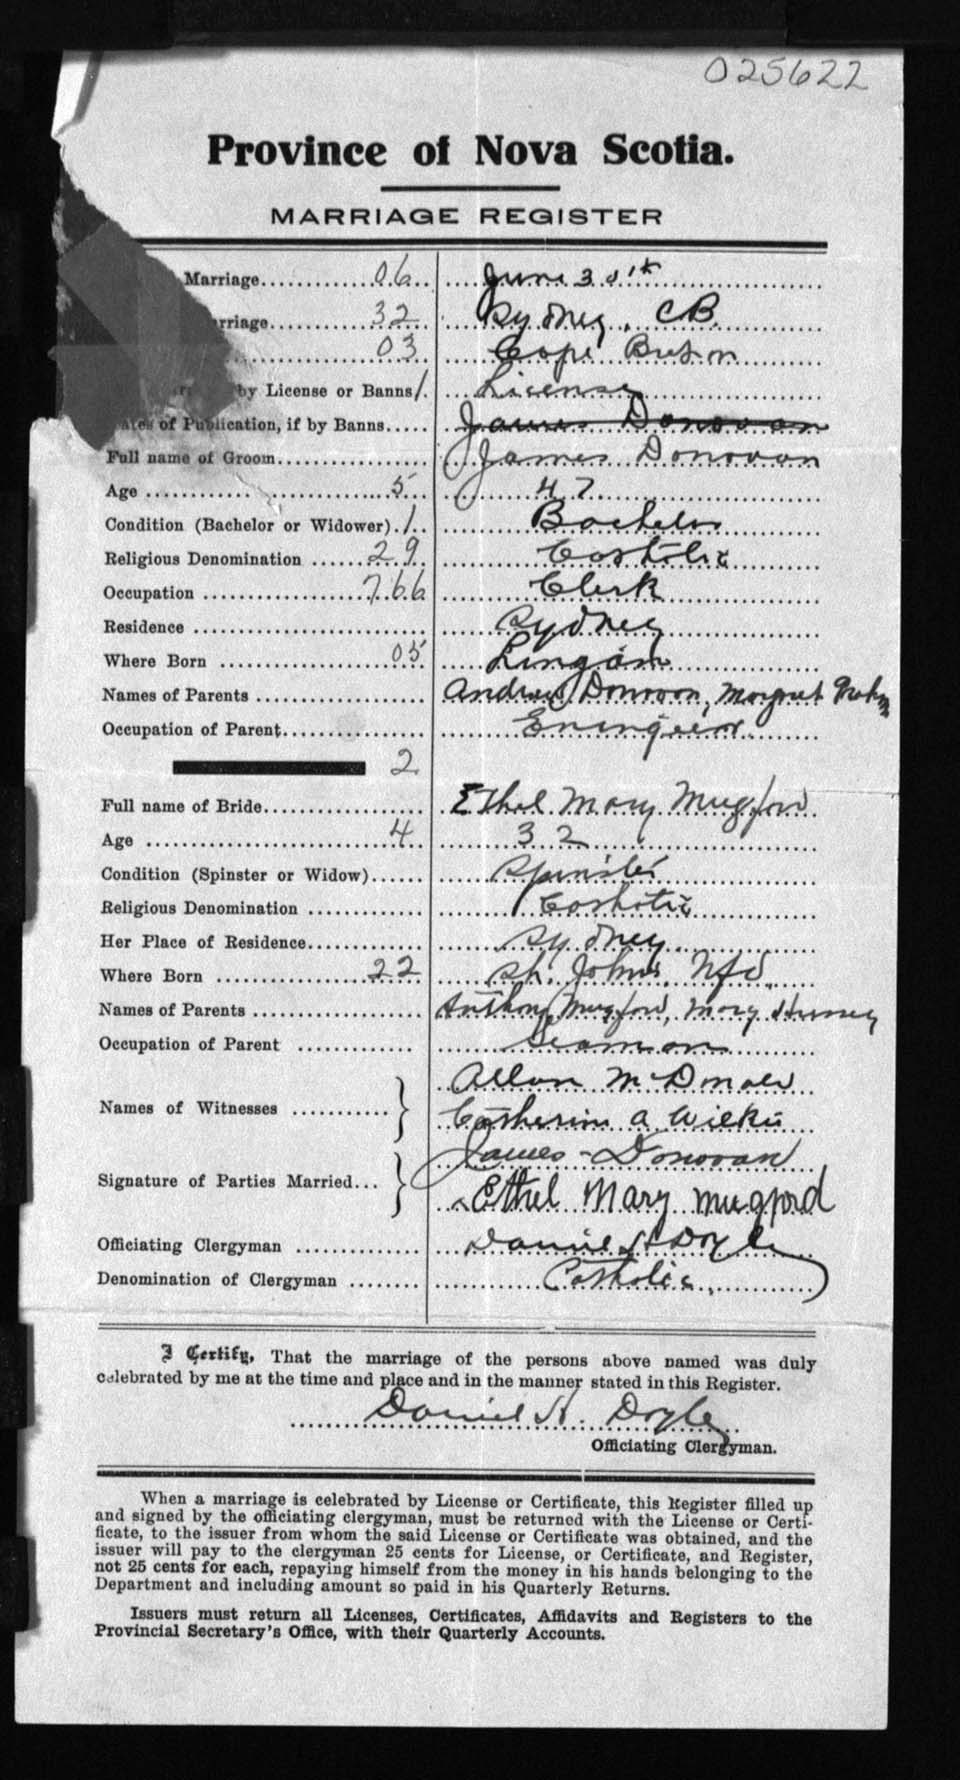 025622
Province of Nova Scotia.
MARRIAGE REGISTER
Marriage 06 June 30th
rriage 32 Sydney, CB.
03 Cape Breton
by License or Banns 1. License
ates of Publication, if by Banns James Donovan
Full name of Groom James Donovan
Age 5 47
Condition (Bachelor or Widower) 1. Bachelor
Religious Denomination 29 Catholic
Occupation 766 Clerk
Residence Sydney
Where Born 05 Lingan
Names of Parents Andrew Donovan, Margret
Occupation of Parent Eningeer
2
Full name of Bride Ethel Mary Mugford
Age 4 32
Condition (Spinster or Widow) Spinster
Religious Denomination Catholic
Her Place of Residence Sydney
Where Born 22 St. Johns, Nfd.
Names of Parents Anthony Mugford, Mary
Occupation of Parent Seaman
Allan McDonald
Names of Witnesses
Catherine A Wilkie
James - Donovan
Signature of Parties Married
Ethel Mary Mugford
Officiating Clergyman Daniel H Doyle
Denomination of Clergyman Catholic
I Certify, That the marriage of the persons above named was duly
celebrated by me at the time and place and in the manner stated in this Register.
Daniel H. Doyle
Officiating Clergyman.
When a marriage is celebrated by License or Certificate, this Register filled up
and signed by the officiating clergyman, must be returned with the License or Certi-
ficate, to the issuer from whom the said License or Certificate was obtained, and the
issuer will pay to the clergyman 25 cents for License, or Certificate, and Register,
not 25 cents for each, repaying himself from the money in his hands belonging to the
Department and including amount so paid in his Quarterly Returns.
Issuers must return all Licenses, Certificates, Affidavits and Registers to the
Provincial Secretary's Office, with their Quarterly Accounts.